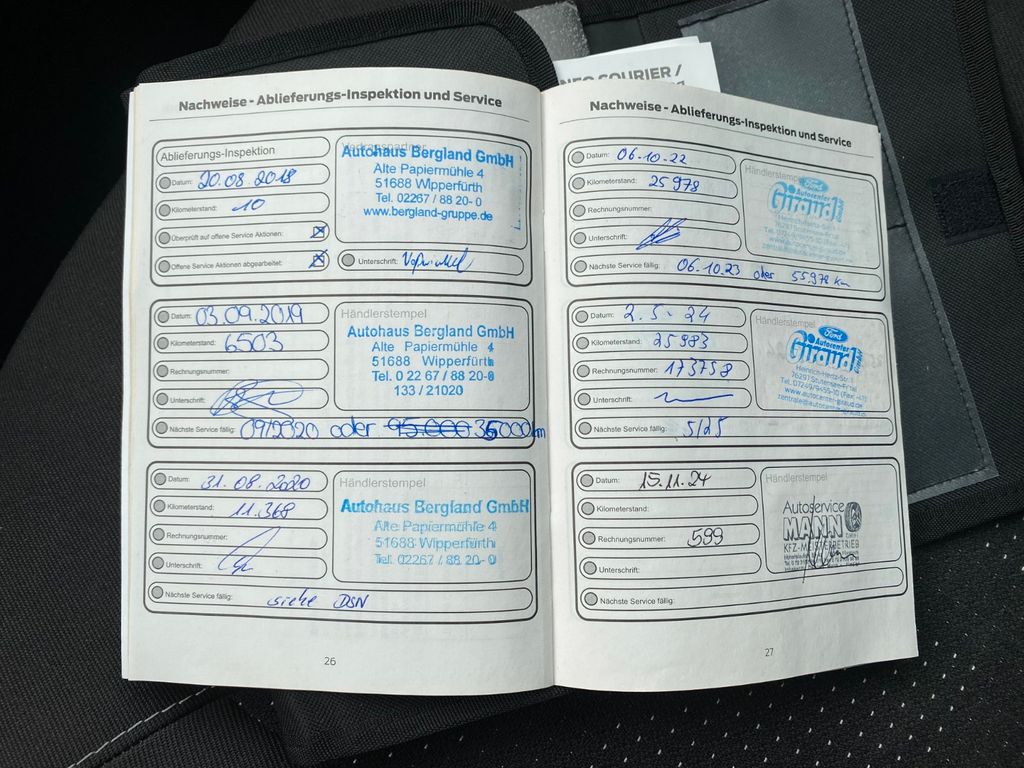 NFO COURIER /
Nachweise - Ablieferungs-Inspektion und Service
Ablieferungs-Inspektion
Datum: 20.08.2018
Kilometerstand: 10
Überprüft auf offene Service Aktionen:
Offene Service Aktionen abgearbeitet:
Autohaus Bergland GmbH
Alte Papiermühle 4
51688 Wipperfürth
Tel. 02267 / 88 20- 0
www.bergland-gruppe.de
Unterschrift:
Datum: 03.09.2019
Kilometerstand: 6503
Rechnungsnummer:
Unterschrift:
Nächste Service fällig: 09/2020 oder 95.000 35000 km
Händlerstempel
Autohaus Bergland GmbH
Alte Papiermühle 4
51688 Wipperfürth
Tel. 0 22 67 / 88 20-0
133 / 21020
Datum: 31.08.2020
Kilometerstand: 11.368
Rechnungsnummer:
Unterschrift:
Nächste Service fällig: siehe DSN
Händlerstempel
Autohaus Bergland GmbH
Alte Papiermühle 4
51688 Wipperfürth
Tel. 02267 / 88 20- 0
26
Nachweise - Ablieferungs-Inspektion und Service
Datum: 06.10.22
Kilometerstand: 25978
Rechnungsnummer:
Unterschrift:
Nächste Service fällig: 06.10.23 oder 55.978 km
Händlerstempel
Ford
Autocenter
Giraud
Datum: 2.5.24
Kilometerstand: 25983
Rechnungsnummer: 173758
Unterschrift:
Nächste Service fällig: 5/25
Händlerstempel
Ford
Autocenter
Giraud GmbH
Heinrich-Hertz-Str. 1
76297 Stutensee-Frtal
www.autocenter-giraud.de
Datum: 15.11.24
Kilometerstand:
Rechnungsnummer: 599
Unterschrift:
Nächste Service fällig:
Händlerstempel
Autoservice
MANN
KFZ-MEISTERBETRIEB
27